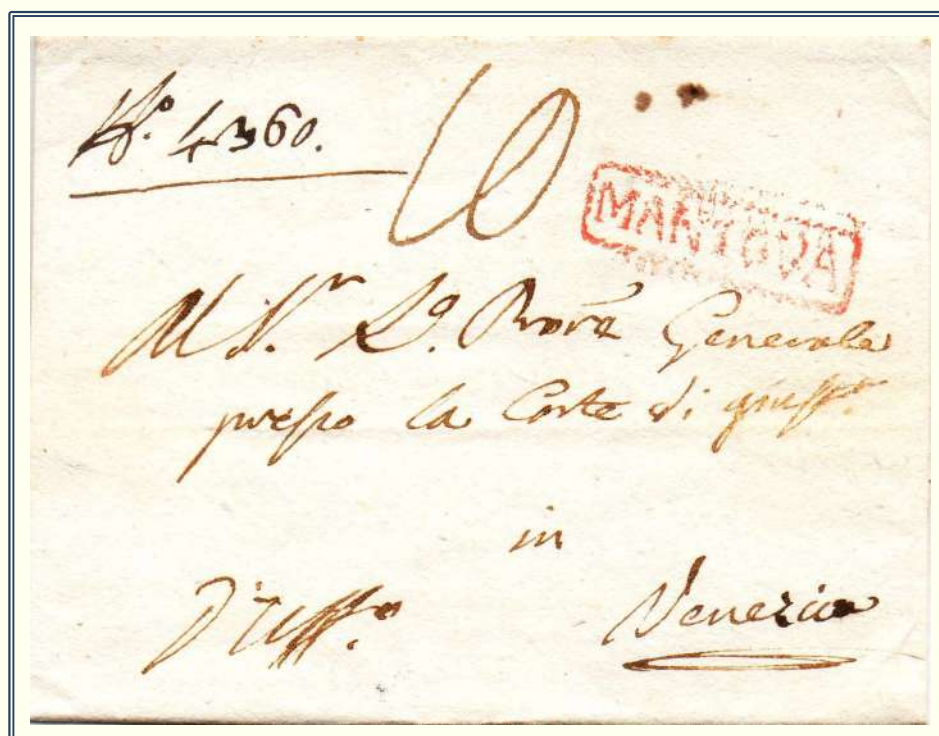 N.º 4360.
10
MANTOVA
Al S.r R.º Proc.e Generale
presso la Corte di giust.a
in
D'Uff.º Venezia